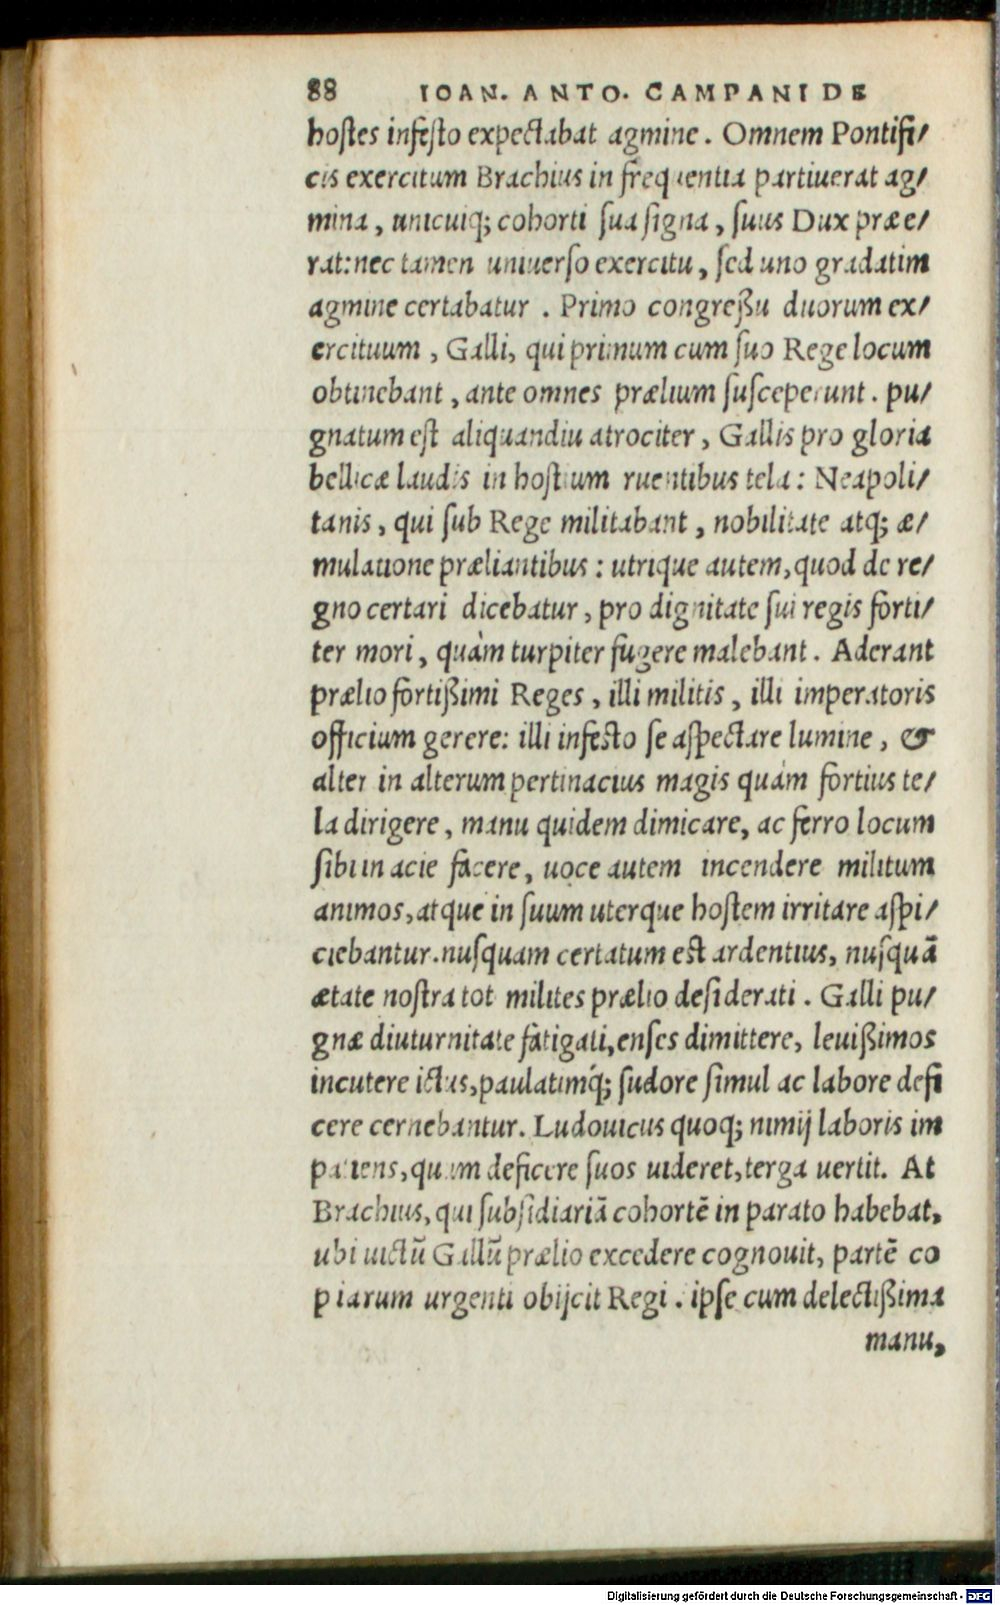 88 IOAN. ANTO. CAMPANI DE
hoſtes infeſto expectabat agmine. Omnem Pontifi/
cis exercitum Brachius in frequentia partiuerat ag/
mina, unicuiq; cohorti ſua ſigna, ſuus Dux præe/
rat: nec tamen uniuerſo exercitu, ſed uno gradatim
agmine certabatur. Primo congreßu duorum ex/
ercituum, Galli, qui primum cum ſuo Rege locum
obtinebant, ante omnes prælium ſuſceperunt. pu/
gnatum eſt aliquandiu atrociter, Gallis pro gloria
bellicæ laudis in hoſtium ruentibus tela: Neapoli/
tanis, qui ſub Rege militabant, nobilitate atq; æ/
mulatione præliantibus: utrique autem, quod de re/
gno certari dicebatur, pro dignitate ſui regis forti/
ter mori, quàm turpiter fugere malebant. Aderant
prælio fortißimi Reges, illi militis, illi imperatoris
officium gerere: illi infeſto ſe aſpectare lumine, &
alter in alterum pertinacius magis quàm fortius te/
la dirigere, manu quidem dimicare, ac ferro locum
ſibi in acie facere, uoce autem incendere militum
animos, atque in ſuum uterque hoſtem irritare aſpi/
ciebantur. nuſquam certatum eſt ardentius, nuſquã
ætate noſtra tot milites prælio deſiderati. Galli pu/
gnæ diuturnitate fatigati, enſes dimittere, leuißimos
incutere ictus, paulatimq́; ſudore ſimul ac labore defi
cere cernebantur. Ludouicus quoq; nimij laboris im
patiens, quum deficere ſuos uideret, terga uertit. At
Brachius, qui ſubſidiariã cohortẽ in parato habebat,
ubi uictũ Gallũ prælio excedere cognouit, partẽ co
piarum urgenti obijcit Regi. ipſe cum delectißima
manu,
Digitalisierung gefördert durch die Deutsche Forschungsgemeinschaft - DFG